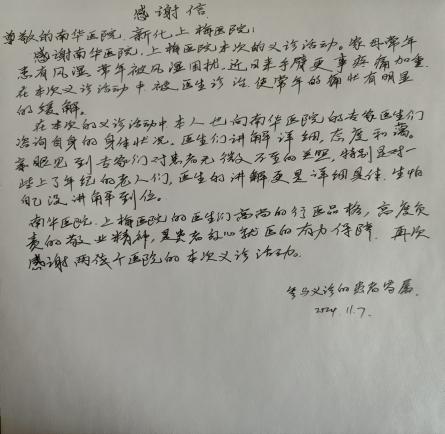 感谢信
尊敬的南华医院、新化上梅医院:
感谢南华医院、上梅医院本次的义诊活动。家母常年
患有风湿,常年被风湿困扰,近又来手臂更事疼痛加重.
在本次义诊活动中被医生诊治,使常年的痛状有明显
的缓解。
在本次的义诊活动中本人也向南华医院的专家医生们
咨询自身的身体状况。医生们讲解详细,态度和蔼。
亲眼见到专家们对患者无微不至的关照,特别是对一
些上了年纪的老人们,医生的讲解更是详细具体,生怕
自己没讲解到位。
南华医院、上梅医院的医生们高尚的行医品格,高度负
责的敬业精神,是患者放心就医的有力保障。再次
感谢两位个医院的本次义诊活动。
参与义诊的患者家属.
2024.11.7.